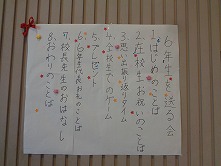 6年生を送る会
1.はじめのことば
2.在校生お祝いのことば
3.思い出振り返りタイム
4.全校生でのゲーム
5.プレゼント
6.6年生代表おれいのことば
7.校長先生のおはなし
8.おわりのことば